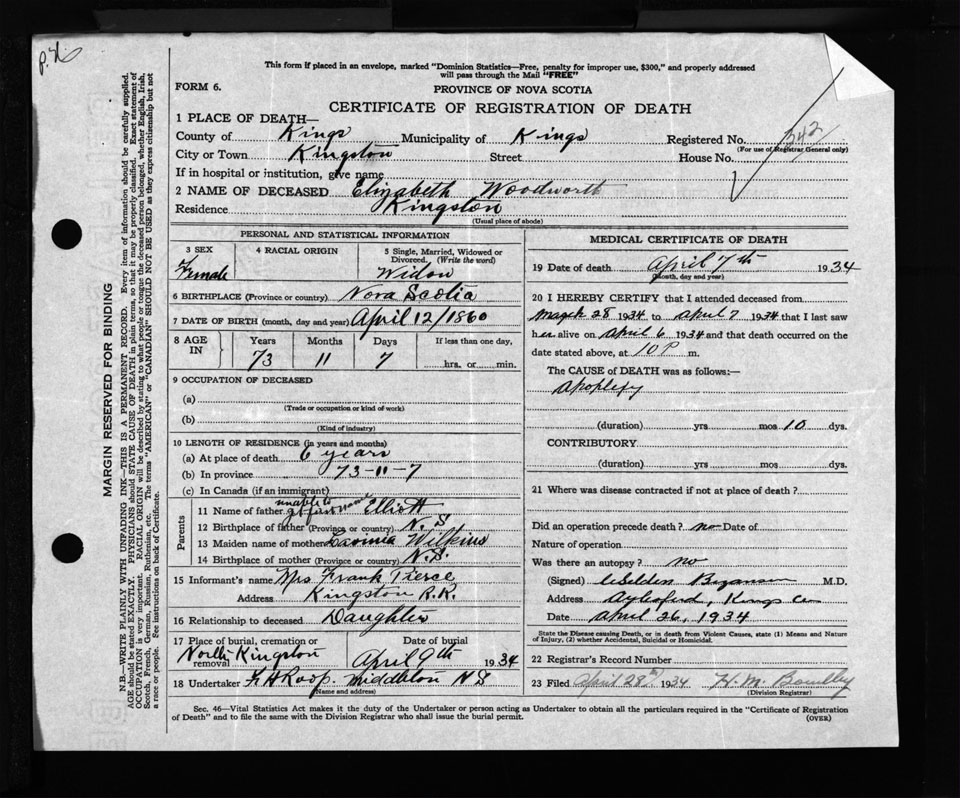 P.N.
This form if placed in an envelope, marked "Dominion Statistics—Free, penalty for improper use, $300," and properly addressed
will pass through the Mail "FREE"
FORM 6.
PROVINCE OF NOVA SCOTIA
CERTIFICATE OF REGISTRATION OF DEATH
1 PLACE OF DEATH—
County of Kings Municipality of Kings Registered No. 342
(For use of Registrar General only)
City or Town Kingston Street House No.
If in hospital or institution, give name
2 NAME OF DECEASED Elizabeth Woodworth
Residence Kingston
(Usual place of abode)
PERSONAL AND STATISTICAL INFORMATION
3 SEX
Female
4 RACIAL ORIGIN
5 Single, Married, Widowed or
Divorced. (Write the word)
Widow
6 BIRTHPLACE (Province or country) Nova Scotia
7 DATE OF BIRTH (month, day and year) April 12/1860
8 AGE IN
Years Months Days If less than one day,
73 11 7 hrs. or min.
9 OCCUPATION OF DECEASED
(a)
(Trade or occupation or kind of work)
(b)
(Kind of industry)
10 LENGTH OF RESIDENCE (in years and months)
(a) At place of death 6 years
(b) In province 73-11-7
(c) In Canada (if an immigrant)
Parents
11 Name of father unable to get first name Elliott
12 Birthplace of father (Province or country) N.S
13 Maiden name of mother Lavinia Wilkins
14 Birthplace of mother (Province or country) N.S.
15 Informant's name Mrs Frank Pierce
Address Kingston R.R.
16 Relationship to deceased Daughter
17 Place of burial, cremation or removal North Kingston
Date of burial
April 9th 1934
18 Undertaker F.H Roop. Middleton N S
(Name and address)
MEDICAL CERTIFICATE OF DEATH
19 Date of death April 7th 1934
(Month, day and year)
20 I HEREBY CERTIFY that I attended deceased from
March 28 1934 to April 7 1934 that I last saw
her alive on April 6 1934 and that death occurred on the
date stated above, at 10 P m.
The CAUSE of DEATH was as follows:—
Apoplexy
(duration) yrs mos 10 dys.
CONTRIBUTORY
(duration) yrs. mos. dys.
21 Where was disease contracted if not at place of death?
Did an operation precede death? no Date of
Nature of operation
Was there an autopsy? no
(Signed) Weldon Bezanson M.D.
Address Aylesford, Kings Co
Date April 26, 1934
State the Disease causing Death, or in death from Violent Causes, state (1) Means and Nature
of Injury, (2) whether Accidental, Suicidal or Homicidal.
22 Registrar's Record Number
23 Filed April 28th 1934 H. M.
(Division Registrar)
Sec. 46—Vital Statistics Act makes it the duty of the Undertaker or person acting as Undertaker to obtain all the particulars required in the "Certificate of Registration
of Death" and to file the same with the Division Registrar who shall issue the burial permit.
(OVER)
MARGIN RESERVED FOR BINDING
N.B.—WRITE PLAINLY WITH UNFADING INK—THIS IS A PERMANENT RECORD. Every item of information should be carefully supplied.
AGE should be stated EXACTLY. PHYSICIANS should STATE CAUSE OF DEATH in plain terms, so that it may be properly classified. Exact statement of
OCCUPATION is very important. RACIAL ORIGIN will be described by stating to what people or tongue the deceased person belonged, whether English, Irish,
Scotch, French, German, Russian, Ruthenian, etc. The terms "AMERICAN" or "CANADIAN" SHOULD NOT BE USED as they express citizenship but not
a race or people. See instructions on back of Certificate.